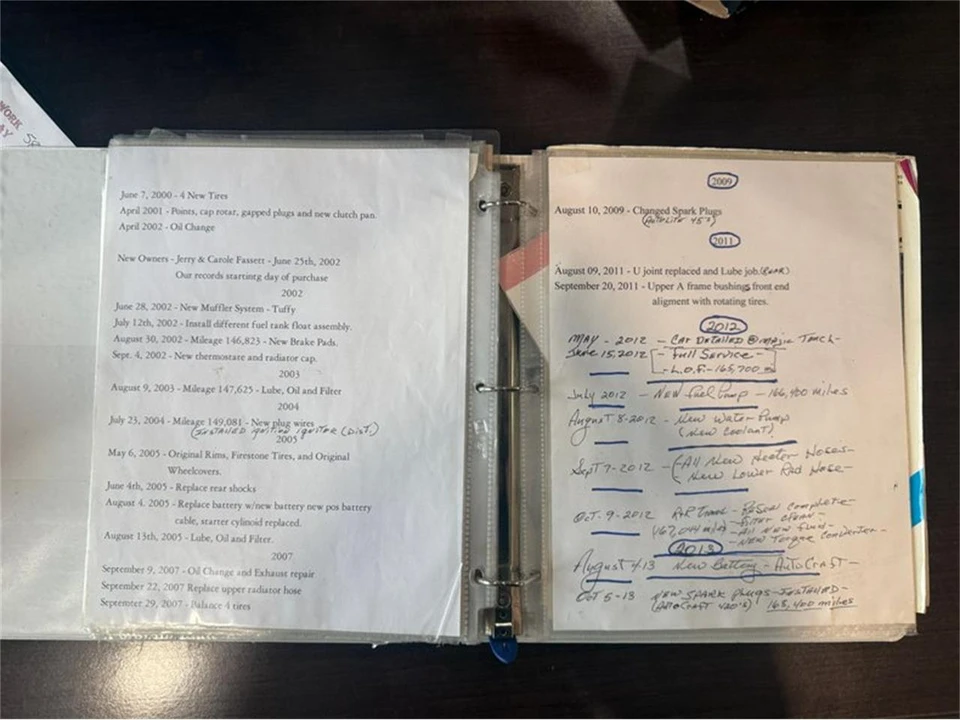 WORK
AY
June 7, 2000 - 4 New Tires
April 2001 - Points, cap rotar, gapped plugs and new clutch pan.
April 2002 - Oil Change
New Owners - Jerry & Carole Fassett - June 25th, 2002
Our records startintg day of purchase
2002
June 28, 2002 - New Muffler System - Tuffy
July 12th, 2002 - Install different fuel rank float assembly.
August 30, 2002 - Mileage 146,823 - New Brake Pads.
Sept. 4, 2002 - New thermostate and radiator cap.
2003
August 9, 2003 - Mileage 147,625 - Lube, Oil and Filter
2004
July 23, 2004 - Mileage 149,081 - New plug wires
(Installed Ignitor (Dist.)
2005
May 6, 2005 - Original Rims, Firestone Tires, and Original
Wheelcovers.
June 4th, 2005 - Replace rear shocks
August 4. 2005 - Replace battery w/new battery new pos battery
cable, starter cylinoid replaced.
August 13th, 2005 - Lube, Oil and Filter.
2007
September 9, 2007 - Oil Change and Exhaust repair
September 22, 2007 Replace upper radiator hose
Septemter 29, 2007 - Balance 4 tires
2009
August 10, 2009 - Changed Spark Plugs
(Autolite 45's)
2011
August 09, 2011 - U joint replaced and Lube job.
September 20, 2011 - Upper A frame bushings front end
aligment with rotating tires.
2012
May - 2012 - Car Detailed @ Majic Touch -
June 15, 2012 - Full Service -
- L.O.F. - 165,700 m
July 2012 - New Fuel Pump - 166,400 miles
August 8-2012 - New Water Pump
(New Coolant)
Sept 7-2012 - (- All New Heater Hoses -
New Lower Rad Hose -
Oct. 9-2012 R&R Trans - Reseal Complete -
(167,044 mile) - Filter Clean -
- All New Fluid -
- New Torque Converter -
2013
August 4-13 New Battery - AutoCraft -
Oct 5-13 New Spark Plugs - Installed -
(AutoCraft 420's) 168,400 miles